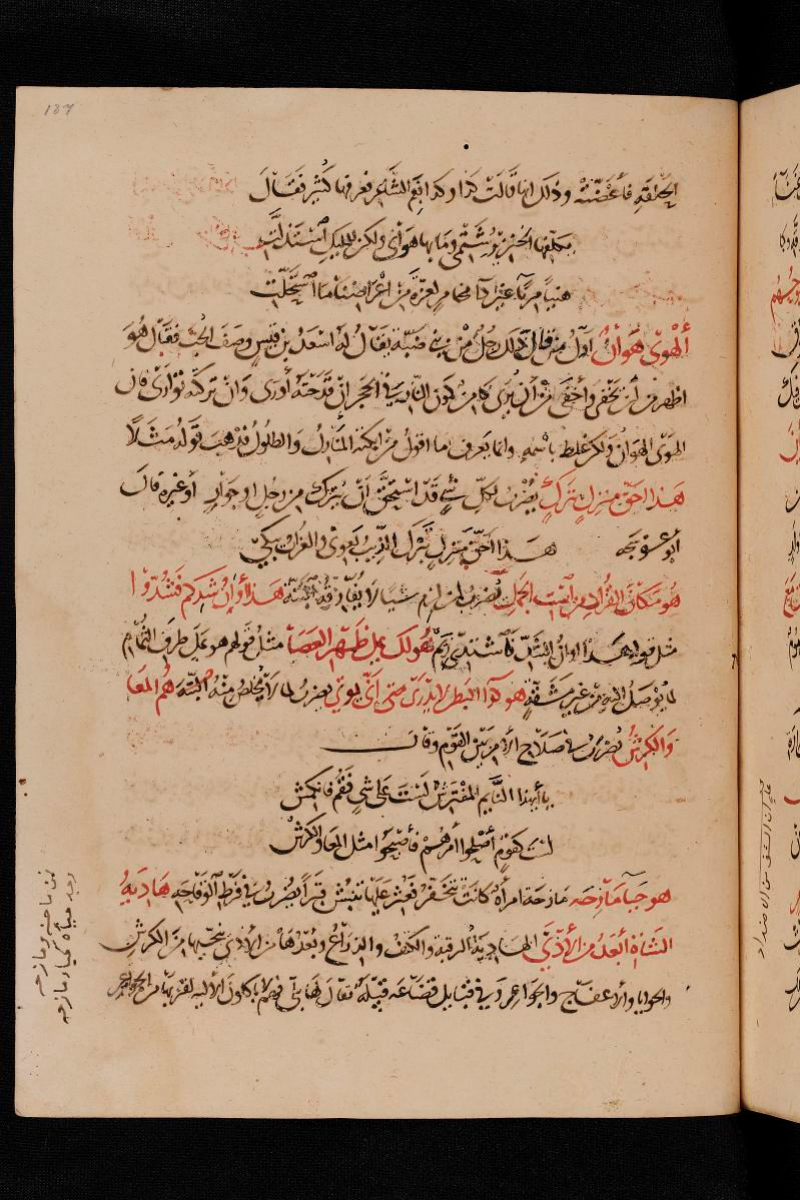 137
الحلقة فأعضته وذلك انها قالت كذا وكذا بفم الشاعر فعرفها كثير فقال
يكلفها الخنزير شتمي وما بها هواني ولكن للمليك استذلت
هنيا مريا غير داء مخامر لعزة من اعراضنا ما استحلت
الهوى هوان اول من قال ذلك رجل من بني ضبة يقال له اسعد بن قيس وصف الحب فقال هو
اظهر من أن يخفى وأخفى من أن يرى كامن كمون النار في الحجر ان قدحته أورى وان تركته توارى وان
الهوى الهوان ولكن غلط باسمه وانما يعرف ما اقول من ابكته المنازل والطلول فذهب قوله مثلا
هذا احق منزل بترك يضرب لكل شيء قد استحق ان يترك من رجل او جوار أو غيره قال
ابو عوسجة هذا احق منزل بترك الذيب يعوي والغراب يبكي
هو مكان القراد من است الجمل يضرب لمن لزم شيا لا يفارقه البتة هذا أوان شدكم فشدوا
مثل قولهم هذا اوان الشد فاشتدي زيم هو لك على ظهر العصا مثل قولهم هو على طرف الثمام
لما يوصل اليه من غير مشقة هو كذا البطر لا يدرى متى أتى يوتى يضرب لما لا يخلص منه البتة هم المعا
والكرش يضرب في صلاح الامر بين القوم وقال
يا أيهذا النايم المفترش لست على شي فقم فانكمش
لست كقوم أصلحوا أمرهم فأصبحوا مثل المعا والكرش
هو حيا مازحه مازحة امراة كانت تتخفر فعثر عليها تنبش قبرا يضرب في فرط الوقاحة هادية
الشاة أبعد من الأذى الهادية الرقبة والكتف والذراع وبعدها من الأذى تنحيها من الكرش
والحوايا والاعفاج والجواعر وفي قبايل قضاعة قبيلة يقال لها بلي فهم لا ياكلون الالية لقربها من الجواعر